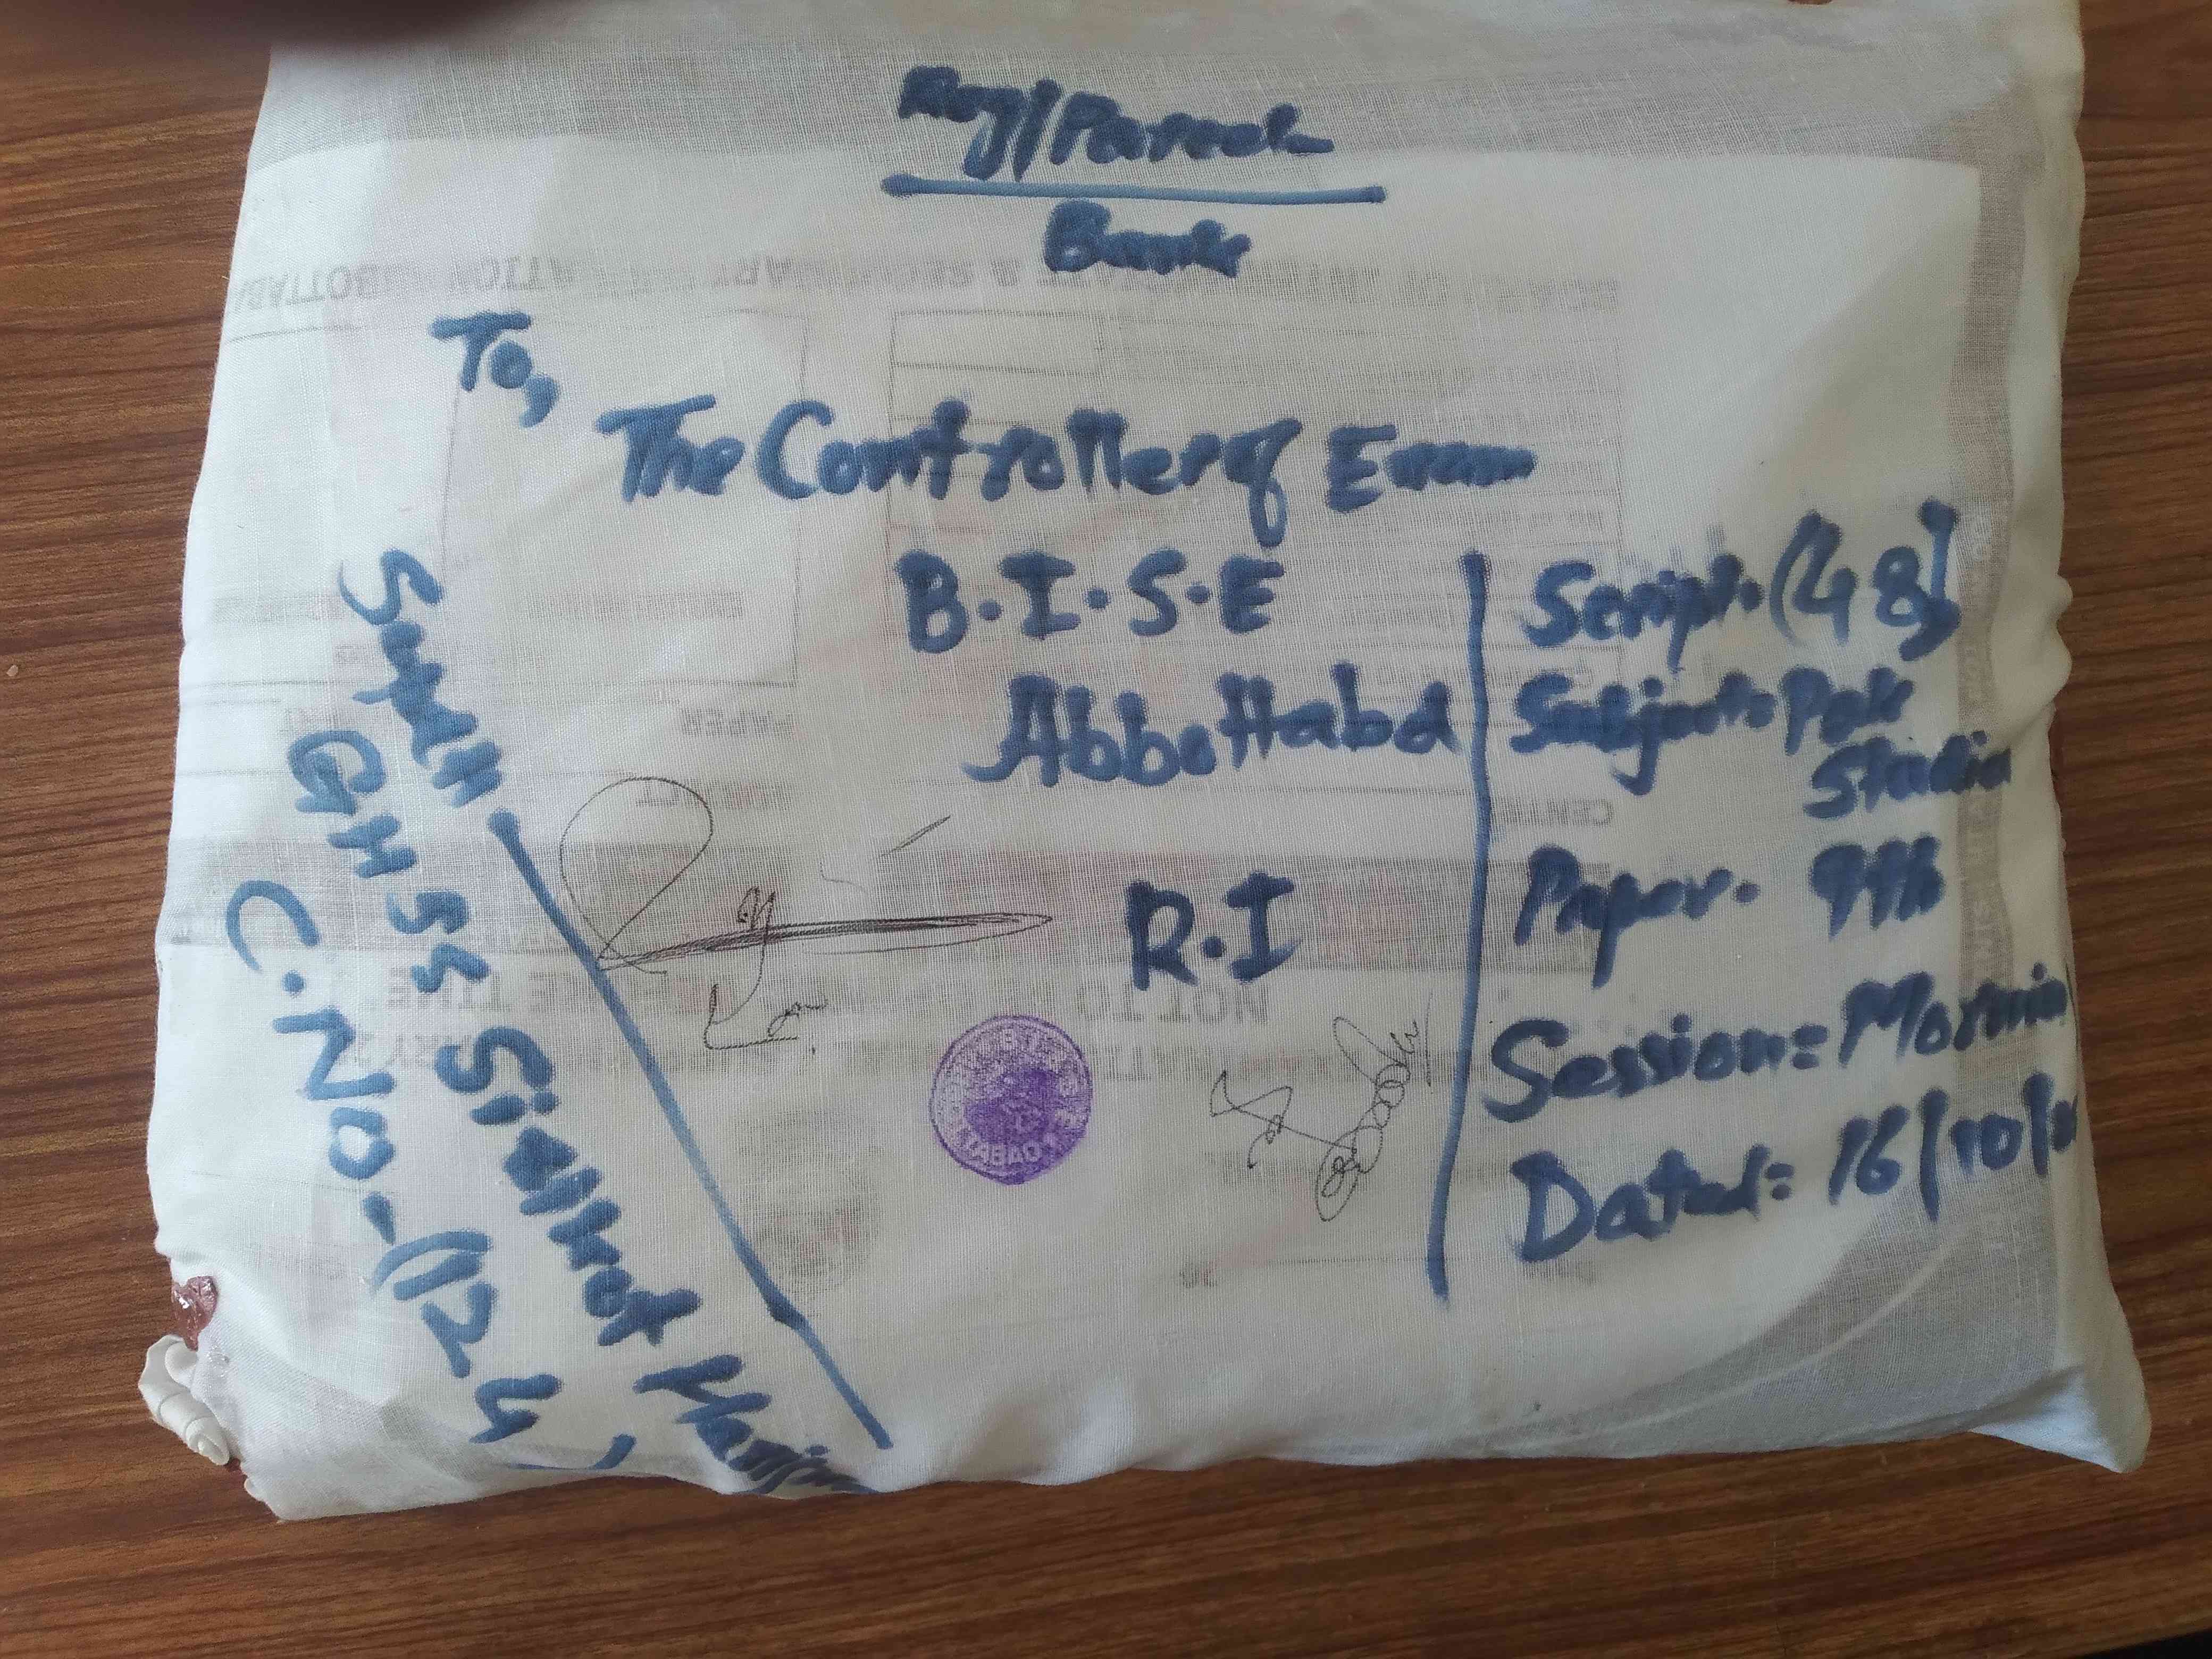 Reg/Parcel
Bank
To,
The Controller of Exam
B.I.S.E
Abbottabd
R.I
Script. (48)
Subject: Pak
Studies
Paper. 9th
Session= Mornin
Dated= 16/10/
Supdt
GHSS Sialkot
C.No-(124)
NOT TO
PAPER